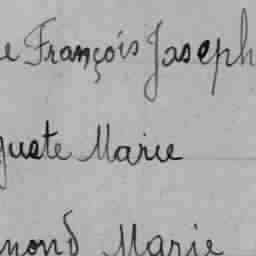 e François Joseph
guste Marie
mond Marie